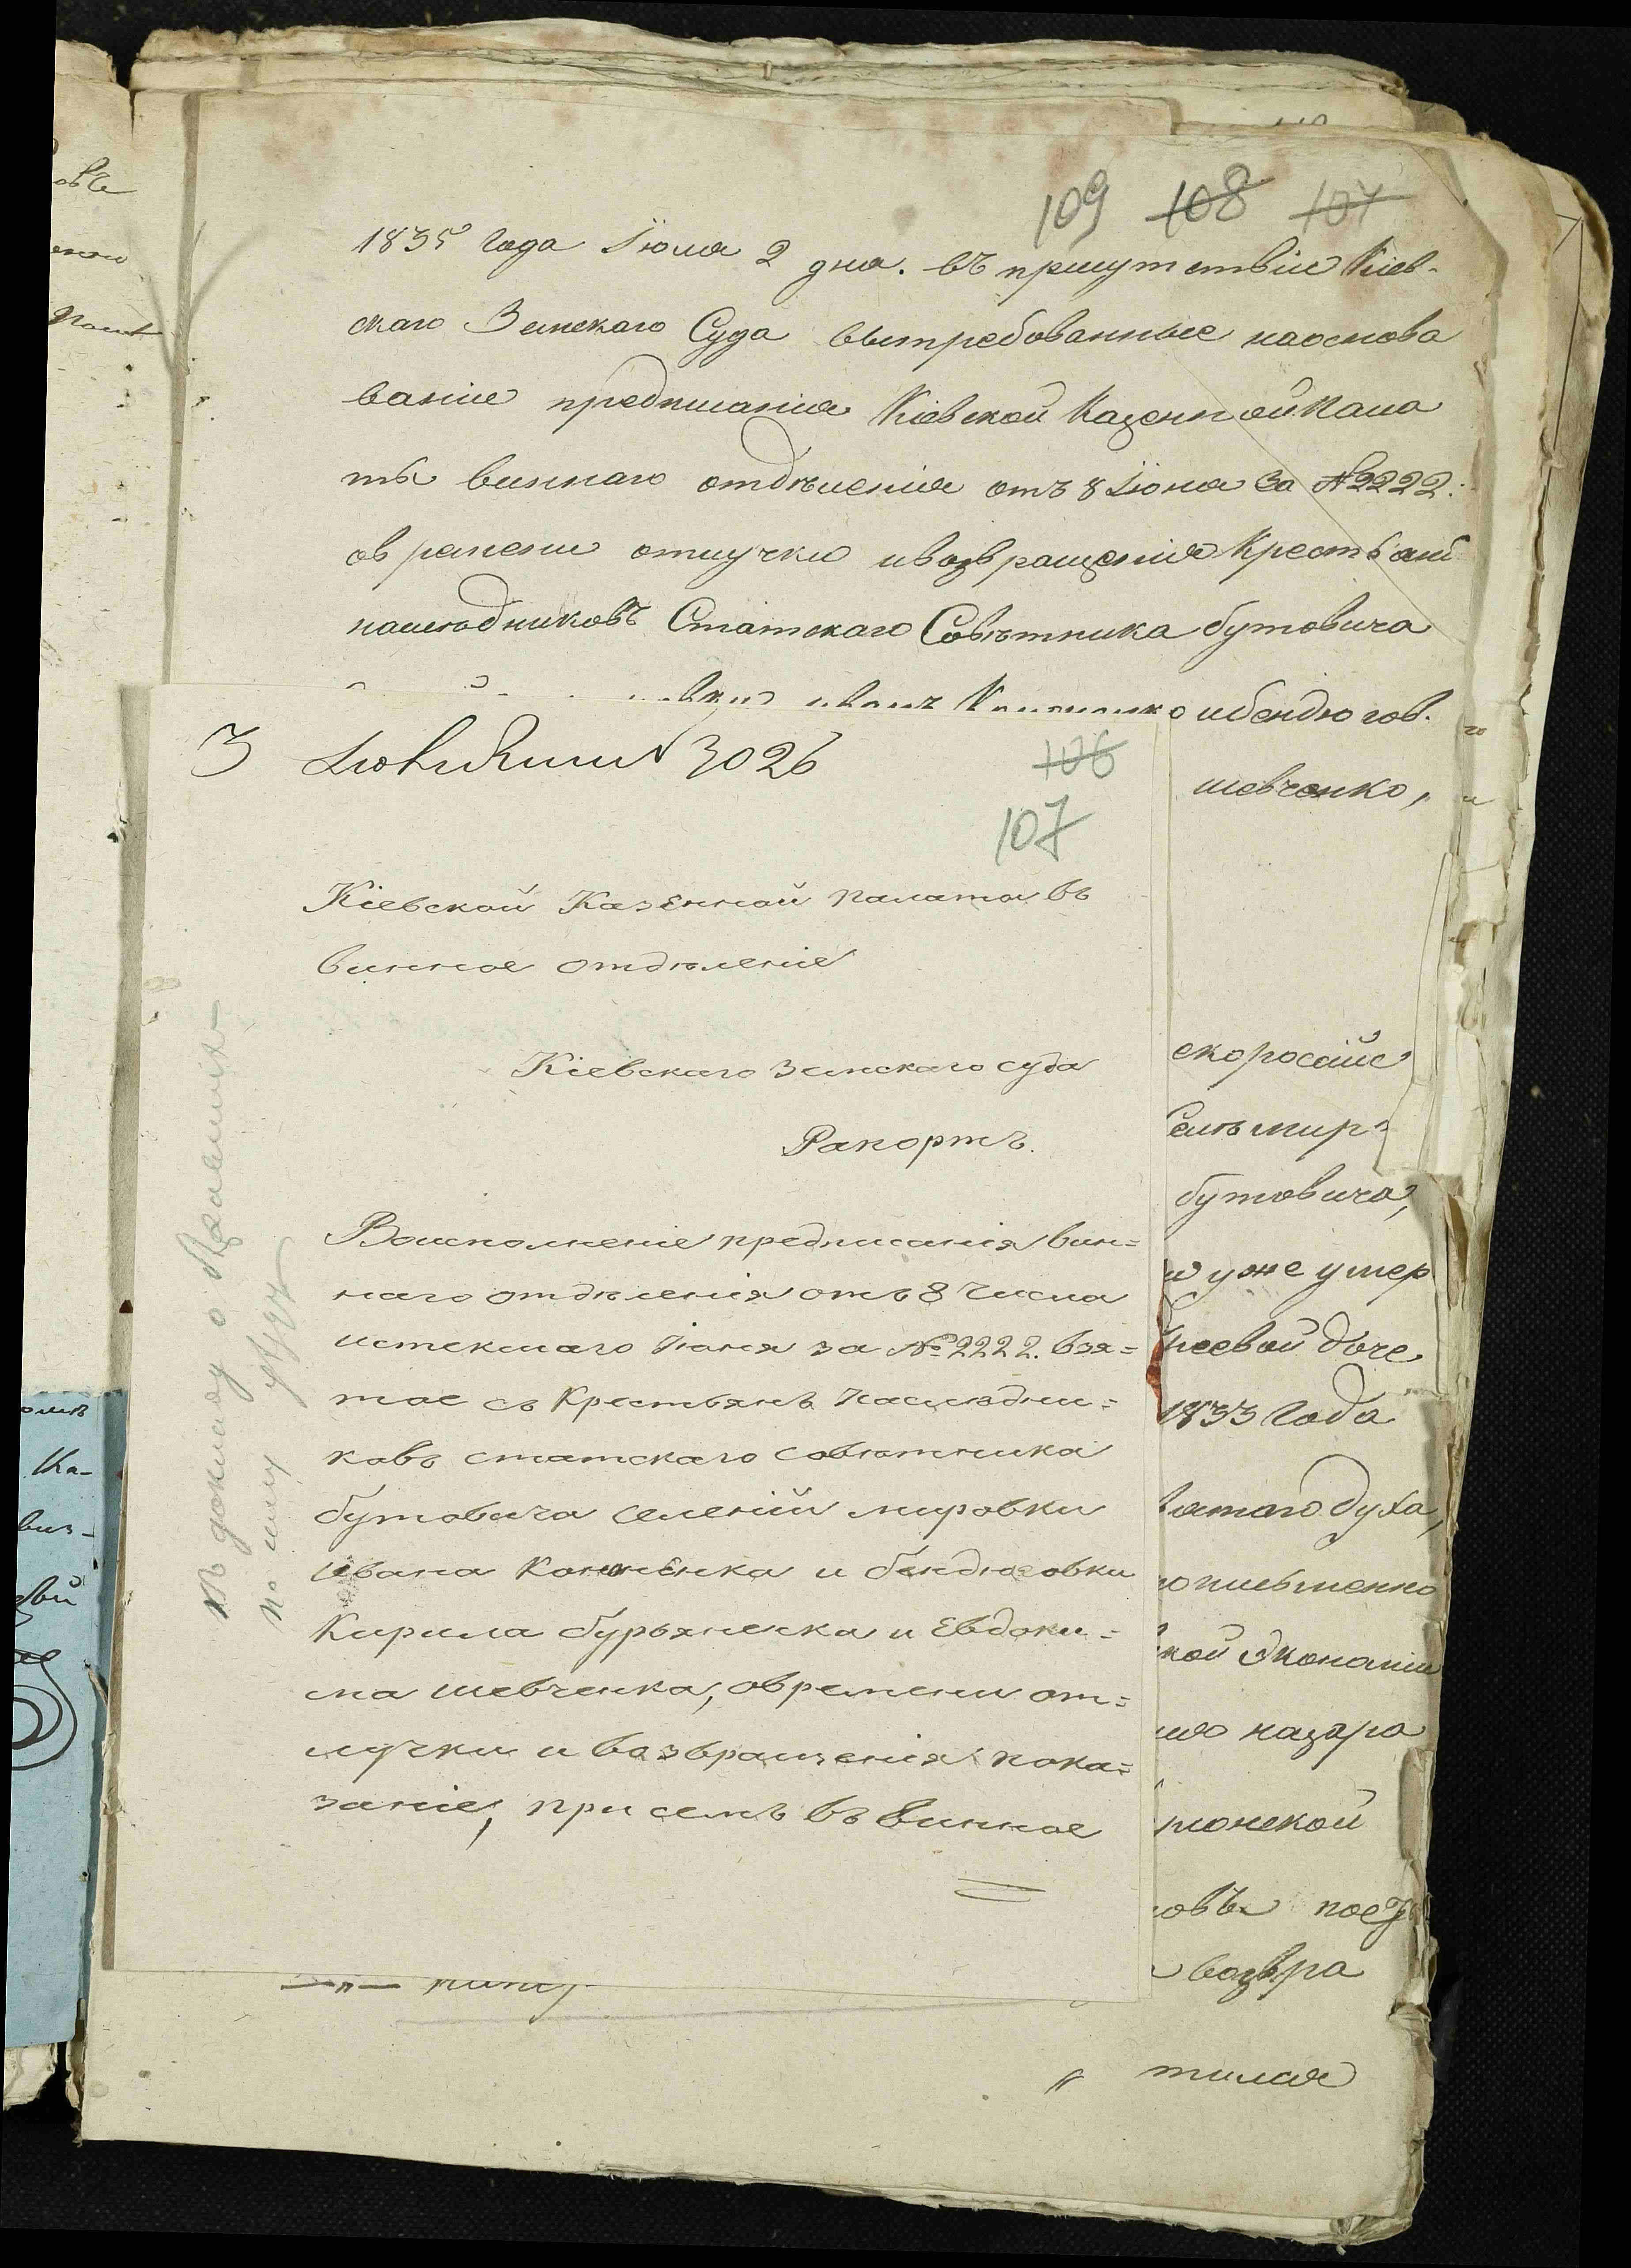 109 108 107
1835 года Іюля 2 дня. въ присутствіи Кіев-
скаго Земскаго Суда вытребованные наоснова
ваніе предписанія Кіевской Казенной Пала
ты виннаго отдѣленія отъ 8 Іюня За №2222.
овремени отлучки ивозвращенія Крестьянъ
наслѣдниковъ Статскаго Совѣтника бутовича
ибендюгов.
шевченко,
екоросійс
Селъ мир
бутовича,
уже умер
1833 Года
вятаго духа,
писменно
кой Экономіи
назара
монской
овъ поез
возвра
тился
3 3026
106
107
Кіевской Казенной палаты въ
винное отдѣленіе
Кіевскаго земскаго суда
Рапортъ.
Воисполненіе предписанія вин=
наго отдѣленія отъ 8 числа
истекшаго Іюня за №2222. взя=
тое съ Крестьянъ наслѣдни=
ковъ статскаго совѣтника
бутовича селеній мировки
Ивана Кононенка и бендюговки
Кирила бурьяненка и Евдоки=
ма шевченка, овремени от=
лучки и возвращенія пока=
заніе, при семъ въ винное
къ докладу о
по сему